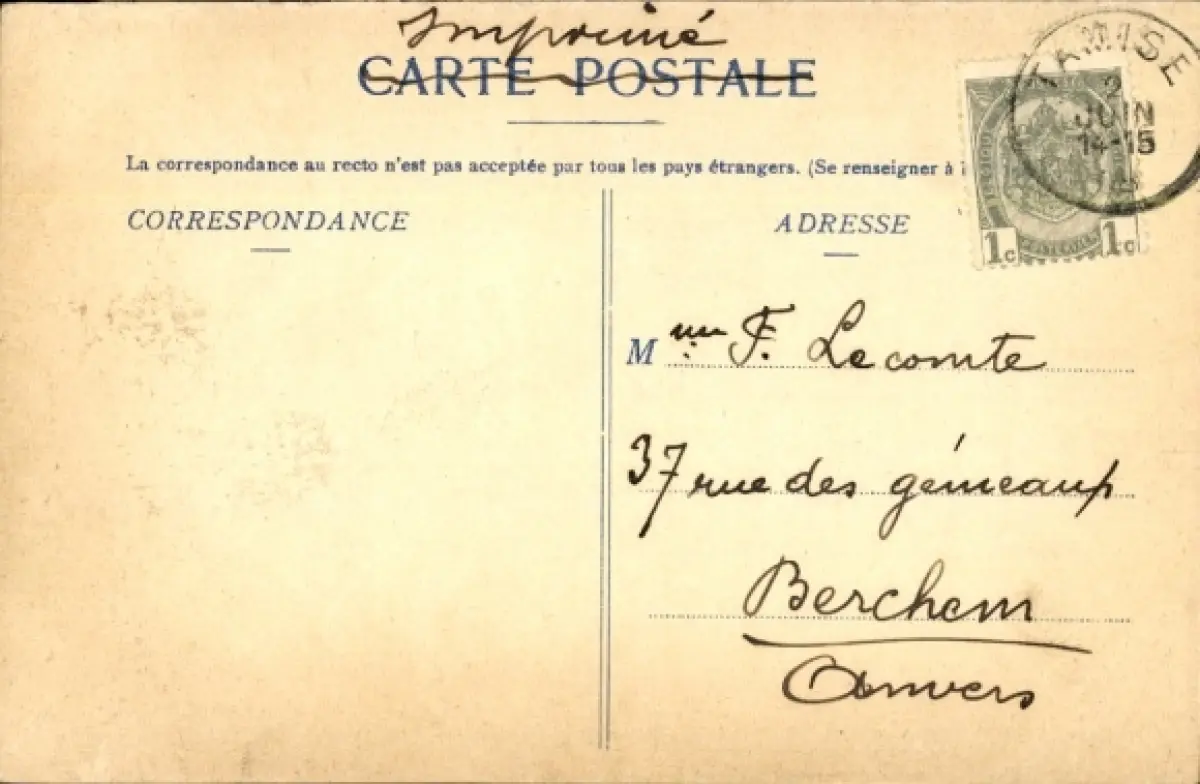 Imprimé
CARTE POSTALE
La correspondance au recto n'est pas acceptée par tous les pays étrangers. (Se renseigner à
CORRESPONDANCE
ADRESSE
TAMISE
2
JUIN
14-15
1c 1c
Mme F. Lecomte
37 rue des gémeaux
Berchem
Anvers